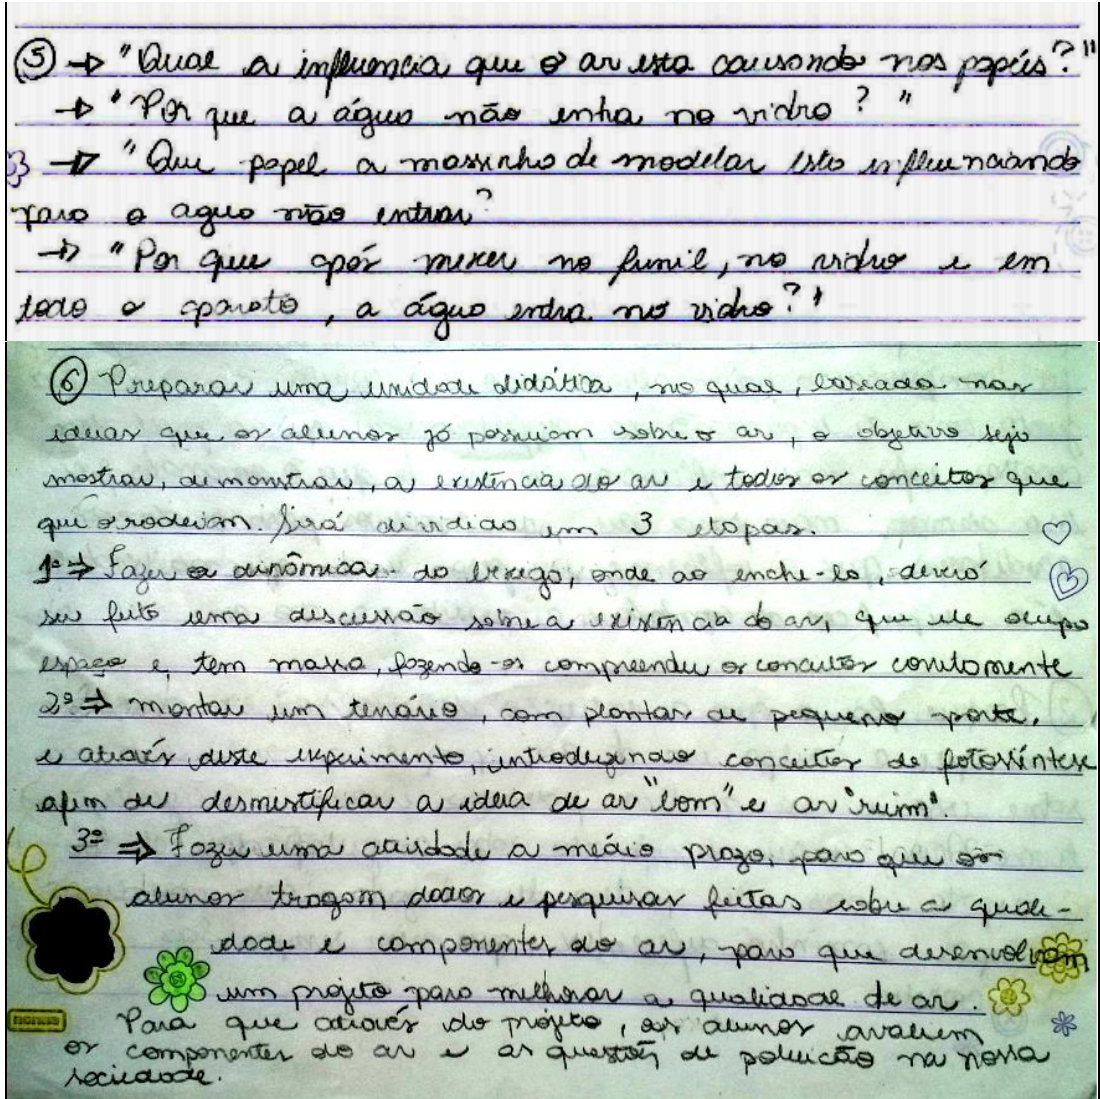 5 → "Qual a influencia que o ar esta causando nos papéis?"
→ "Por que a água não entra no vidro? "
→ "Que papel a massinha de modelar esta influenciando
para a agua não entrar?
→ "Por que após mexer no funil, no vidro e em
todo o aparato, a água entra no vidro?"
6 Preparar uma unidade didática, no qual, baseada nas
ideias que os alunos já possuiam sobre o ar, o objetivo seja
mostrar, demonstrar, a existência do ar e todos os conceitos que
que o rodeiam. Será dividida em 3 etapas.
1º ⇒ Fazer a dinâmica do bexiga, onde ao enche-la, deverá
ser feito uma discussão sobre a existência do ar, que ele ocupa
espaço e, tem massa, fazendo-os compreender os conceitos corretamente
2º ⇒ montar um terrário, com plantas de pequeno porte,
e através deste experimento, introduzindo conceitos de fotossíntese
afim de desmistificar a ideia de ar "bom" e ar "ruim".
3º ⇒ Fazer uma atividade a médio prazo, para que os
alunos tragam dados e pesquisas feitas sobre a quali-
dade e componentes do ar, para que desenvolvam
um projeto para melhorar a qualidade de ar.
Para que através do projeto, os alunos avaliem
os componentes do ar e as questões de poluição na nossa
sociedade.